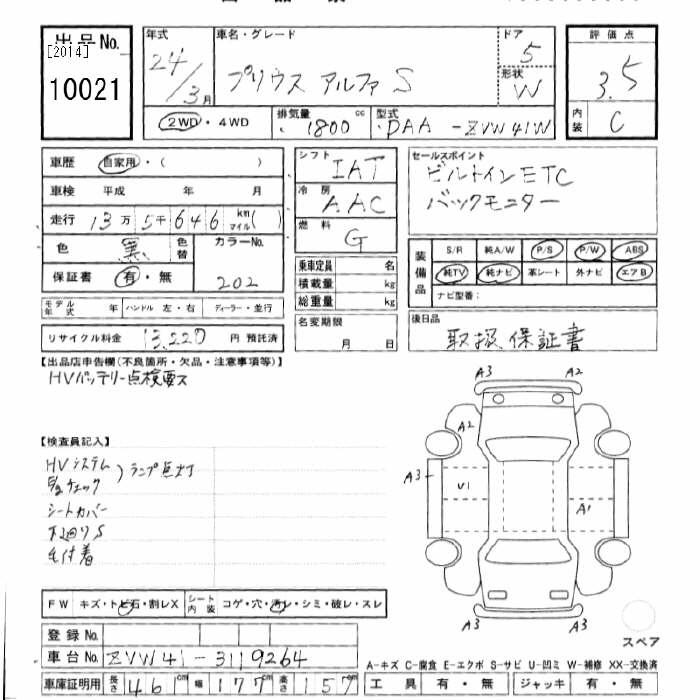 出品No.
[2014]
10021
年式
24/3月
車名・グレード
プリウス アルファ S
ドア
5
形状
W
評価点
3.5
内装
C
2WD・4WD
排気量 cc
1800
型式
DAA-ZVW41W
車歴 自家用・( )
車検 平成 年 月
走行 13万5千646 km マイル( )
色 黒 色替
カラーNo.
202
保証書 有・無
モデル年式 年 ハンドル 左・右 ディーラー・並行
リサイクル料金 13,220 円 預託済
シフト
IAT
冷房
A.AC
燃料
G
乗車定員 名
積載量 kg
総重量 kg
名変期限
月 日
セールスポイント
ビルトインETC
バックモニター
装備品
S/R 純A/W P/S P/W ABS
純TV 純ナビ 革シート 外ナビ エアB
ナビ型番:
後日品
取扱 保証書
【出品店申告欄(不良箇所・欠品・注意事項等)】
HVバッテリー点検要ス
【検査員記入】
HVシステム
チェック
)ランプ点灯
シートカバー
下廻りS
毛付着
A3
A2
A2
A3
V1
A1
A3
A3
スペア
FW キズ・トビ石・割レX
シート内装 コゲ・穴・汚レ・シミ・破レ・スレ
登録No.
車台No. ZVW41-3119264
車庫証明用 長さ 461 cm 幅 177 cm 高さ 157 cm
A-キズ C-腐食 E-エクボ S-サビ U-凹ミ W-補修 XX-交換済
工具 有・無 ジャッキ 有・無